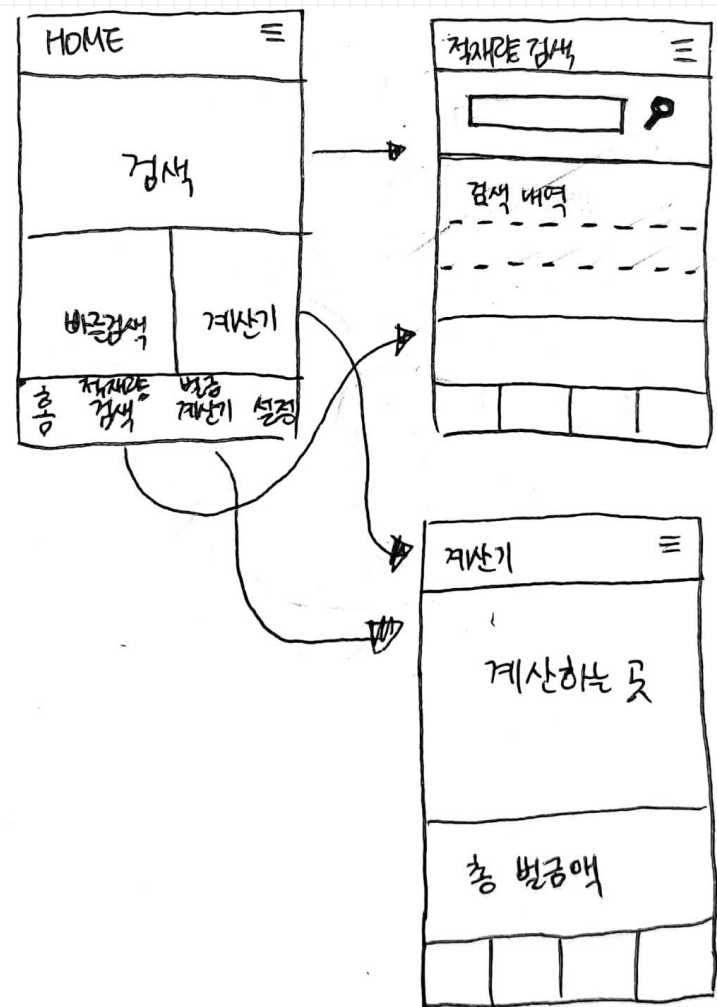 HOME
검색
빠른검색
계산기
홈
적재량
검색
벌금
계산기
설정
적재량 검색
검색 내역
계산기
계산하는 곳
총 벌금액